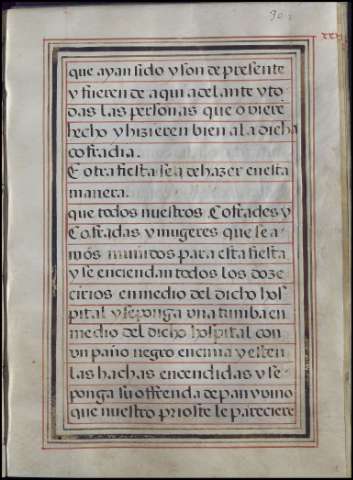 30
xxx
que ayan sido y son de presente
y fueren de aqui adelante y to
das las personas que oviere
hecho y hizieren bien a la dicha
cofradia.
E otra fiesta se a de hazer en esta
manera.
que todos nuestros Cofrades y
Cofradas y mugeres que sea
mós munidos para esta fiesta
y se enciendan todos los doze
cirios en medio del dicho hos
pital y se ponga una tumba en
medio del dicho hospital con
un paño negro encima y esten
las hachas encendidas y se
ponga su offrenda de pan y vino
que nuestro prioste le pareciere